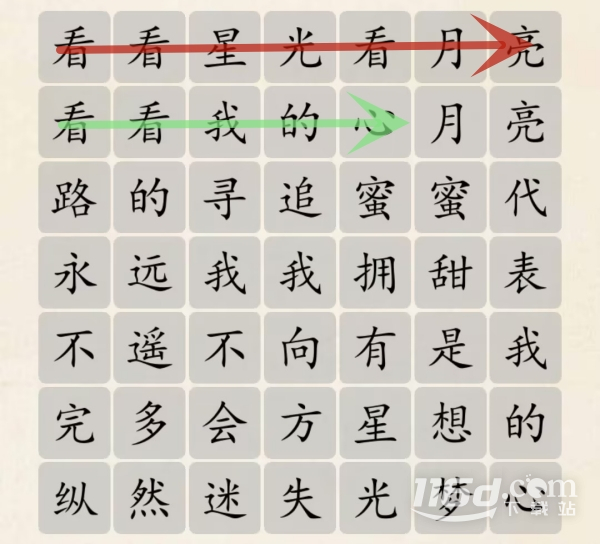 看看星光看月亮
看看我的心月亮
路的寻追蜜蜜代
永远我我拥甜表
不遥不向有是我
完多会方星想的
纵然迷失光梦心
115d.com
下载站